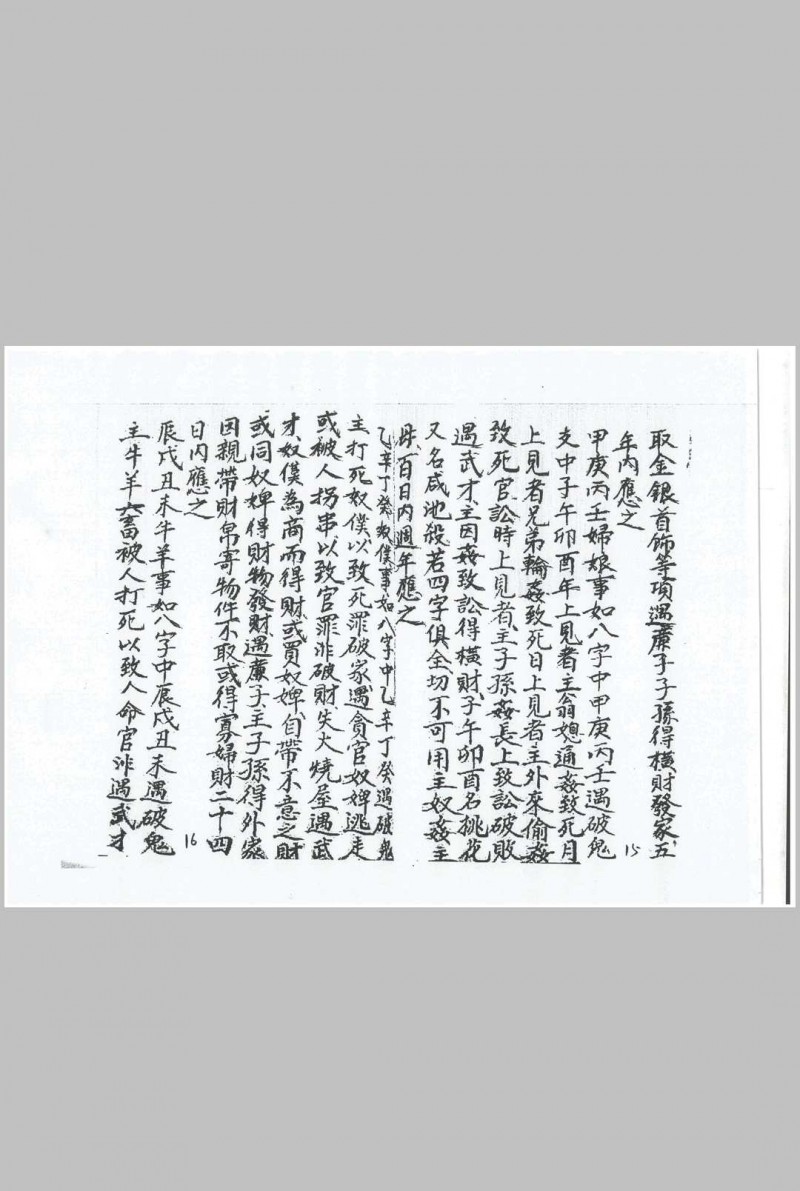 取金銀首飾等項遇廉子子孫得橫財發家五
年內應之
15
甲庚丙壬婦娘事如八字中甲庚丙壬遇破鬼
支中子午卯酉年上見者主翁媳通姦致死月
上見者兄弟輪姦致死日上見者主外來偷姦
致死官訟時上見者主子孫姦長上致訟破敗
遇武才主因姦致訟得橫財子午卯酉名桃花
又名咸池殺若四字俱全切不可用主奴姦主
母百日內週年應之
乙辛丁癸奴僕事如八字中乙辛丁癸遇破鬼
主打死奴僕以致死罪破家遇貪官奴婢逃走
或被人拐串以致官罪非破財失火燒屋遇武
才奴僕為商而得財或買奴婢自帶不意之財
或同奴婢得財物發財遇廉子主子孫得外家
因親帶財帛寄物件不取或得寡婦財二十四
日內應之
16
辰戌丑未牛羊事如八字中辰戌丑未遇破鬼
主牛羊六畜被人打死以致人命官非遇武才